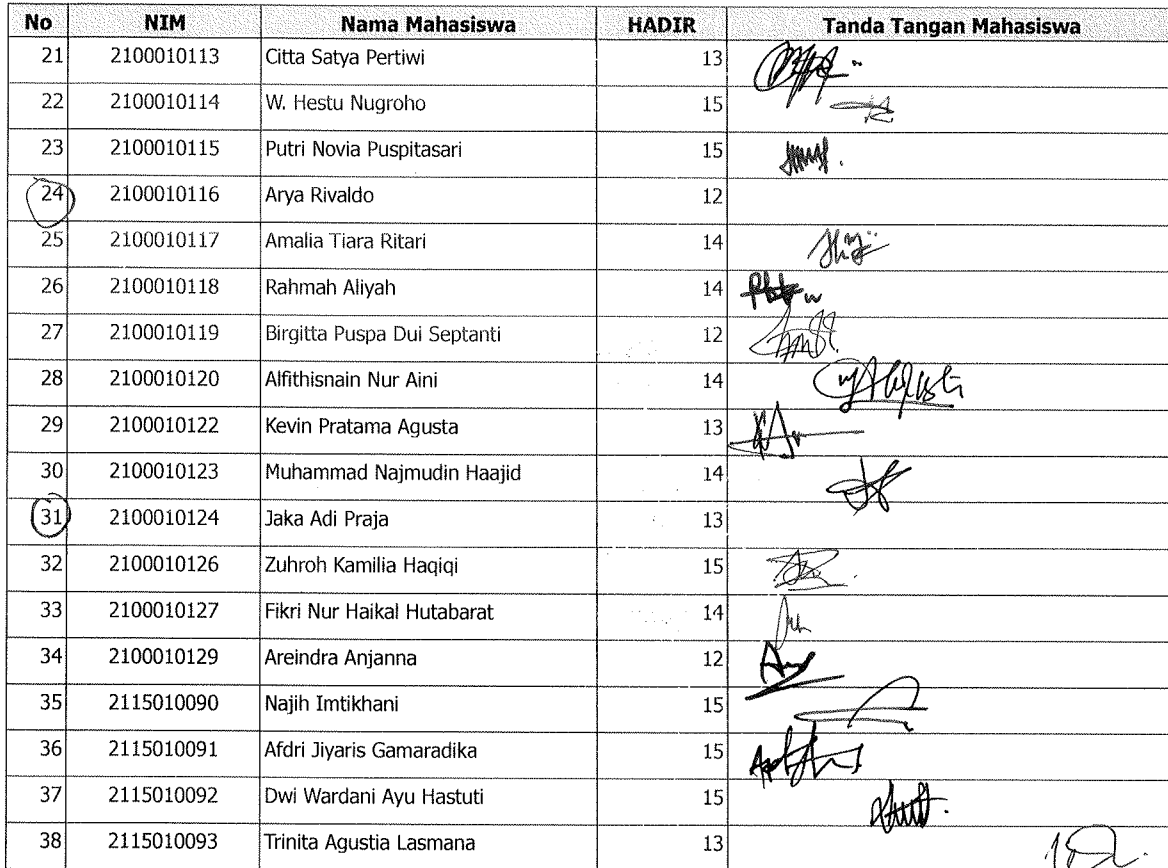 No NIM Nama Mahasiswa HADIR Tanda Tangan Mahasiswa
21 2100010113 Citta Satya Pertiwi 13
22 2100010114 W. Hestu Nugroho 15
23 2100010115 Putri Novia Puspitasari 15
24 2100010116 Arya Rivaldo 12
25 2100010117 Amalia Tiara Ritari 14
26 2100010118 Rahmah Aliyah 14
27 2100010119 Birgitta Puspa Dui Septanti 12
28 2100010120 Alfithisnain Nur Aini 14
29 2100010122 Kevin Pratama Agusta 13
30 2100010123 Muhammad Najmudin Haajid 14
31 2100010124 Jaka Adi Praja 13
32 2100010126 Zuhroh Kamilia Haqiqi 15
33 2100010127 Fikri Nur Haikal Hutabarat 14
34 2100010129 Areindra Anjanna 12
35 2115010090 Najih Imtikhani 15
36 2115010091 Afdri Jiyaris Gamaradika 15
37 2115010092 Dwi Wardani Ayu Hastuti 15
38 2115010093 Trinita Agustia Lasmana 13